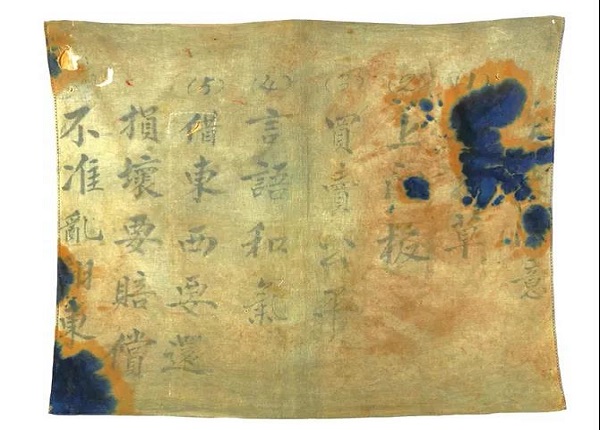 意
(1) 草
(2) 上門板
(3) 買賣公平
(4) 言語和氣
(5) 借東西要還
損壞要賠償
不准亂東